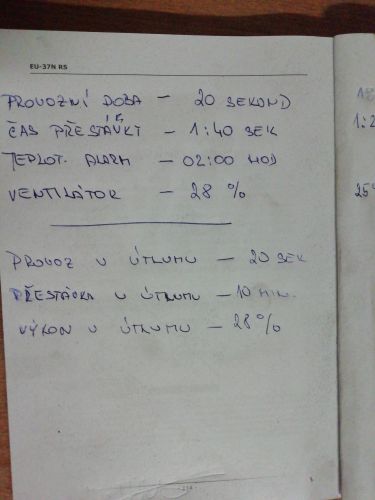 EU-37N RS
PROVOZNÍ DOBA – 20 SEKOND
ČAS PŘESTÁVKY – 1:40 SEK
TEPLOT. ALARM – 02:00 HOD
VENTILÁTOR – 28 %
PROVOZ V ÚTLUMU – 20 SEK
PŘESTÁVKA V ÚTLUMU – 10 MIN.
VÝKON V ÚTLUMU – 28%
1:2
25